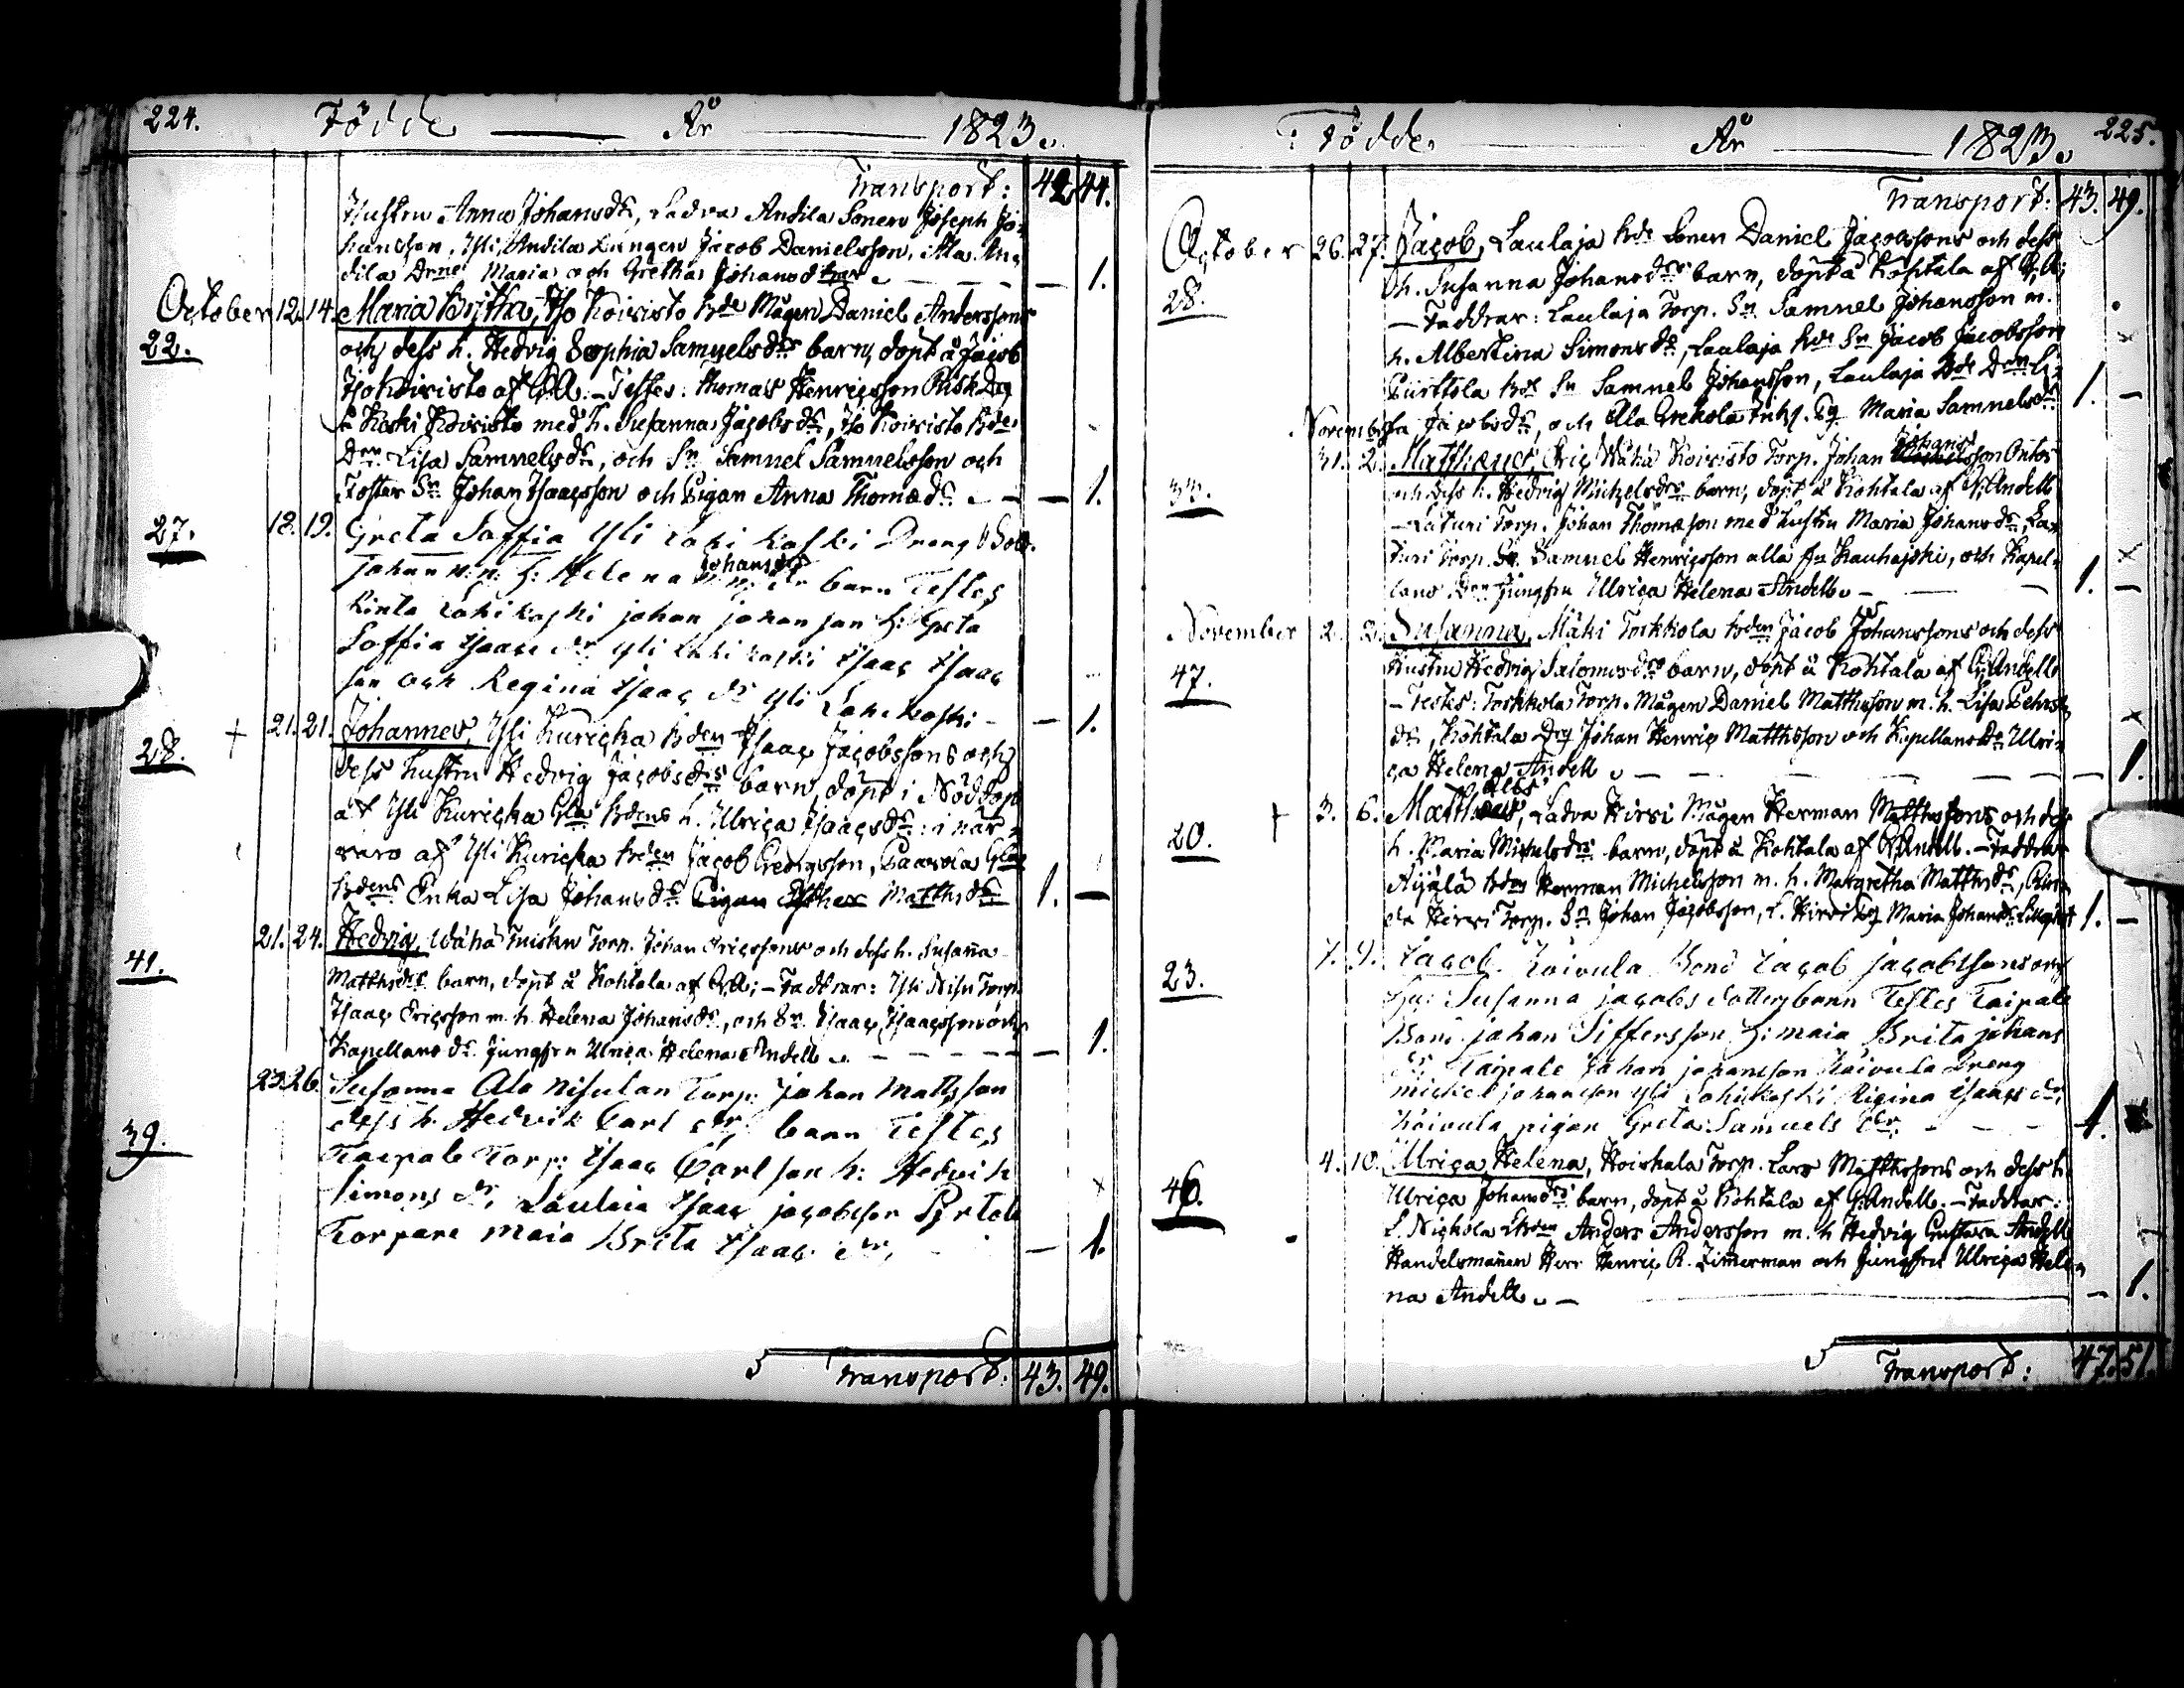 224. Födde År 1823.
Transport: 42 44.
Hustru Anna Johansdr, Ladva Andila Sonen Joseph Jo-
hansson, Yli Andila Lungen Jacob Danielsson, Ala An-
dila Drne Maria och Gretha Johansdttrar — 1.
October 12. 14. Maria Britha, Iso Koivisto Bde Mågen Daniel Anderssons
22. och dess h. Hedvig Sophia Samuelsdrs barn, döpt å Jacob
Iso Koivisto af G.A. — Testes: Thomas Henricsson
Koski Koivisto med h. Susanna Jacobsdr, Iso Koivisto Bde
Drn Lisa Samuelsdr, och Sn Samuel Samuelsson och
Foster Sn Johan Isaacsson och Pigan Anna Thomædr — 1.
27. 18. 19. Greta Saffia Yli Laki kaski Dreng
johan n:n: h: Helena Johansdr barn Testes
Rinta Lakikaski johan johan son h: Greta
Saffia Isaac dr Yli Lakikaski Isaac Isaac
son och Regina Isaac dr Yli Lakikaski — 1.
28. + 21. 21. Johannes, Yli Kuricka Bden Isaac Jacobssons och
dess hustru Hedvig Jacobsdrs barn, döpt i Nöddop
af Yli Kuricka Gla Bdens h. Ulrica Isaacsdr: i när-
varo af Yli Kuricka Bden Jacob Gredricsson, Paavola Gla
Bdens Enka Lisa Johansdr Pigan Esther Matthsdr 1. —
41. 21. 24. Hedvig, Wähä Tuisku Torp. Johan Ericssons och dess h. Susanna
Matthsdrs barn, döpt å Kohtala af G.A; — Faddrar: Yli Nisu Torp.
Isaac Ericsson m. h. Helena Johansdr, och Sn Isaac Isaacsson och
Kapellans dr Jungfru Ulrica Helena Andell — 1.
23. 26. Susanna Ala Nisulan Torp: Johan Mattsson
39. dess h. Hedvik Carl dr, barn Testes
Taipale Torp: Isaac Carlson h: Hedvik
Simons dr, Laulaia Isaac jacobsson Pirtola
Torpare maia Brita Isaac dr, — 1.
5 Transport: 43. 49.
Födde År 1823. 225.
Transport: 43. 49.
October 26. 27. Jacob, Laulaja Bde Sonen Daniel Jacobssons och dess
28. h. Susanna Johansdrs barn, döpt å Kohtala af G.A;
— Faddrar: Laulaja Torp. Sn Samuel Johansson m.
h. Albertina Simonsdr, Laulaja Bde Sn Jacob Jacobsson
Pirttola Bde Sn Samuel Johansson, Laulaja Bde Drn Li-
sa Jacobsdr, och Ala Grekola Inhy. Pg Maria Samuelsdr 1. —
November 31. 2. Matthæus, Eric Wähä Koivisto Torp. Johan Johansson Ontos
33. och dess h. Hedvig Michelsdrs barn, döpt å Kohtala af G. Andell
— Laturi Torp. Johan Thomæson med hustru Maria Johansdr, La-
turi Torp. Sn Samuel Henricsson alla fr Kauhajoki, och Kapel-
lans Drn Jungfru Ulrica Helena Andell — 1. —
November 2. 2. Susanna, Mäki Torkkola Bden Jacob Johanssons och dess
47. Hustru Hedvig Salomonsdrs barn, döpt å Kohtala af G. Andell
— Testes: Torkkola Torp. Mågen Daniel Matthsson m. h. Lisa Pehrs
dr, Kohtala Drg Johan Henric Matthsson och Kapellans Dr Ulri-
ca Helena Andell — 1.
20. + 3. 6. Matths, Ladva Hirvi Mågen Herman Matthssons och dess
h. Maria Michelsdrs barn, döpt å Kohtala af G. Andell. — Faddrar
Äijälä Bden Herman Michelsson m. h. Margretha Matthsdr,
Hirvi Torp. Sn Johan Jacobsson, L. Hirvi Pg Maria Johansdr 1. —
23. 7. 9. Jacob. Koivula Bond Jacob jacobssons och
Hu: Susanna jacobs dotters barn Testes Taipale
Bond johan Siffersson h: maia Brita johans
dr, Taipale johan johansson Koivula Dreng
mickel johansson Yli Lahikaski Rigina Isaacs dr,
Koivula pigan Greta Samuels dr. 1.
46. 4. 10. Ulrica Helena, Koiskala Torp. Lars Matthssons och dess h.
Ulrica Johansdrs barn, döpt å Kohtala af G. Andell. — Faddrar:
L. Nickola Anders Andersson m. h Hedvig Gustava Andell
Handelsmannen Herr Henric R. Zimmerman och Jungfru Ulrica Hele-
na Andell. — 1.
5 Transport: 47. 51.